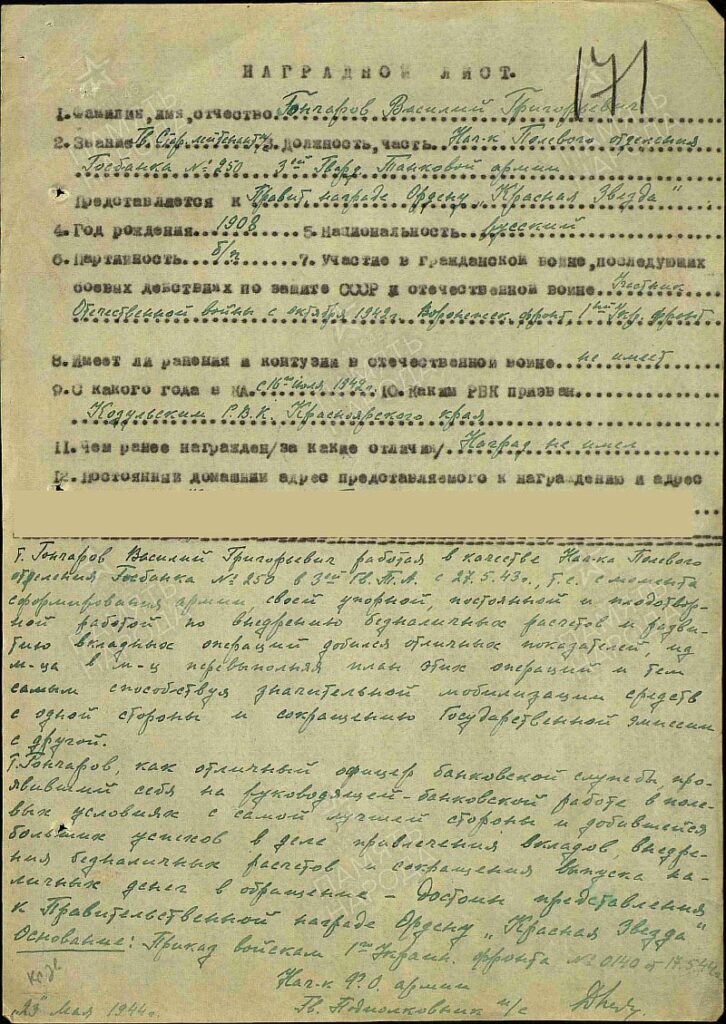 171
НАГРАДНОЙ ЛИСТ.
1. Фамилия, имя, отчество. Гончаров Василий Григорьевич
2. Звание Гв. Ст. лейтенант 3. Должность, часть. Нач-к Полевого отделения
Госбанка № 250 3ей Гвард. Танковой армии
Представляется к Правит. награде Ордену „Красная Звезда"
4. Год рождения. 1908 5. Национальность. русский
6. Партийность. б/п 7. Участие в гражданской войне, последующих
боевых действиях по защите СССР и отечественной войне. Участник
Отечественной войны с октября 1942г. Воронежск. фронт, 1ый Укр. фронт
8. Имеет ли ранения и контузии в отечественной войне. не имеет
9. С какого года в КА. с 16го июля 1942г. 10. Каким РВК призван.
Козульским Р.В.К. Красноярского края
11. Чем ранее награжден /за какие отличия/. Наград не имел
12. Постоянный домашний адрес представляемого к награждению и адрес
т. Гончаров Василий Григорьевич работая в качестве Нач-ка Полевого
отделения Госбанка № 250 в 3ей Гв. Т.А. с 27.5.43г., т.е. с момента
сформирования армии, своей упорной, постоянной и плодотвор-
ной работой по внедрению безналичных расчетов и разви-
тию вкладных операций добился отличных показателей, из
м-ца в м-ц перевыполняя план этих операций и тем
самым способствуя значительной мобилизации средств
с одной стороны и сокращению Государственной эмиссии
с другой.
Т. Гончаров, как отличный офицер банковской службы, про-
явивший себя на руководящей-банковской работе в поле-
вых условиях с самой лучшей стороны и добившейся
больших успехов в деле привлечения вкладов, внедре-
ния безналичных расчетов и сокращения выпуска на-
личных денег в обращение – достоин представления
к Правительственной награде Ордену „Красная Звезда"
Основание: Приказ войскам 1го Украин. фронта № 0140 от 17.5.44г.
Нач-к Ф.О. армии
Гв. Подполковник и/с
25 мая 1944г.